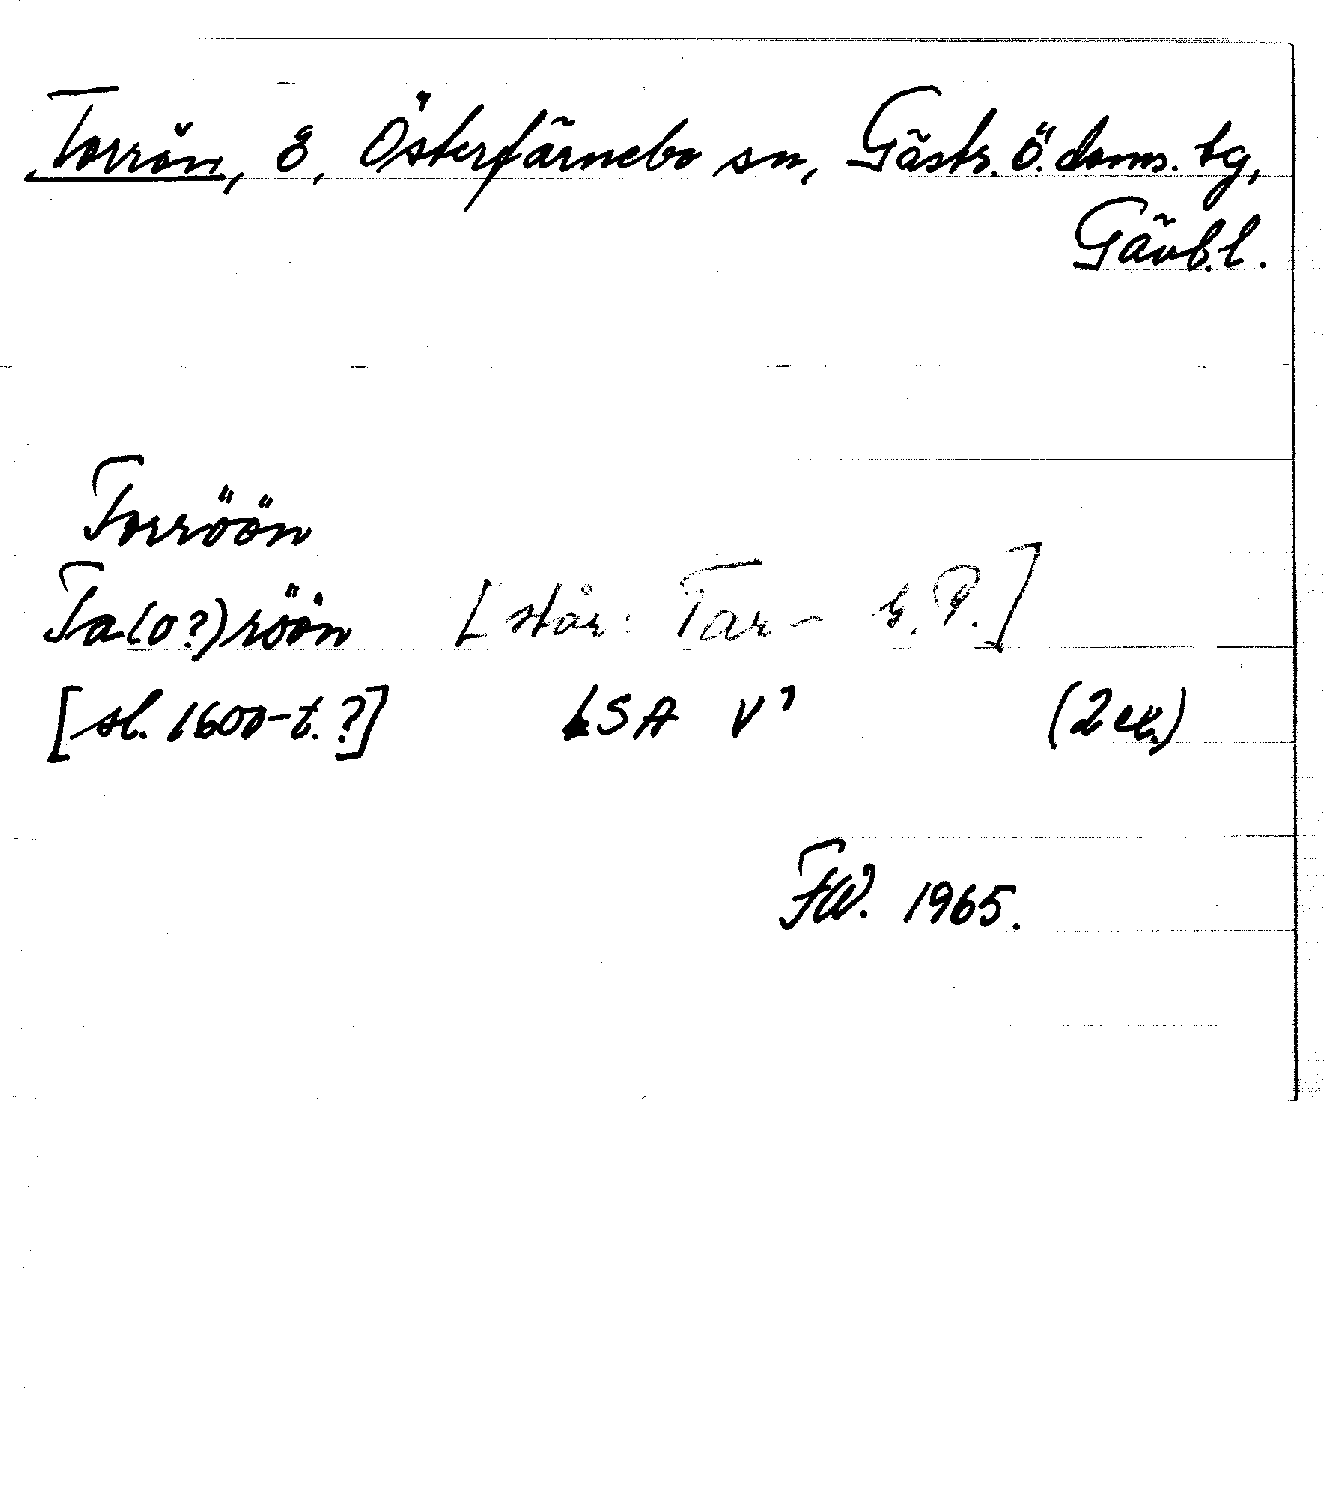 Torrön, ö, Österfärnebo sn, Gästr. ö. doms. tg,
Gävb.l.
Torröön
Ta(o?)röön [står: Tar- G.P.]
[sl. 1600-t.?] LSA V¹ (2 ex.)
FW. 1965.